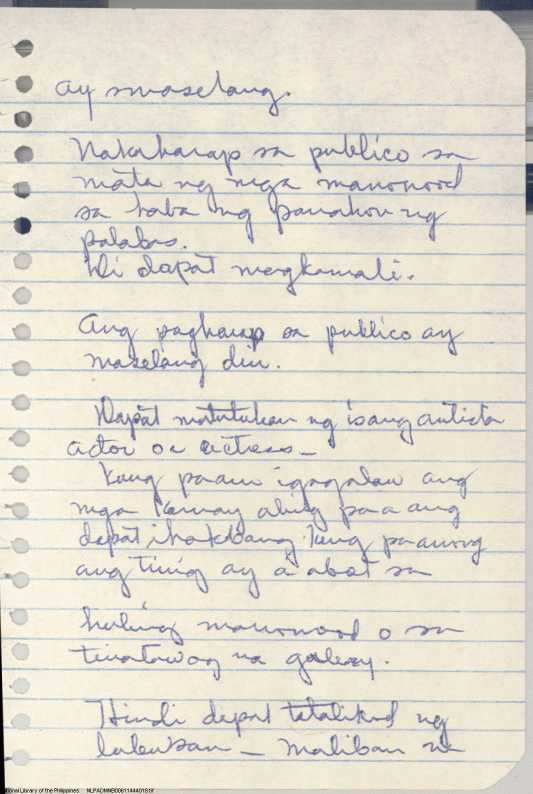 ay maselang.
Nakaharap sa publico sa
mata ng mga manonood
sa haba ng panahon ng
palabas.
Di dapat magkamali.
Ang pagharap sa publico ay
maselang din.
Dapat matutuhan ng isang artista
actor or actress –
Kung paano igagalaw ang
mga kamay aling paa ang
dapat ihakbang kung paanong
ang tinig ay aabot sa
huling manonood o sa
tinatawag na galery.
Hindi dapat tatalikod ng
lubusan – maliban na
National Library of the Philippines